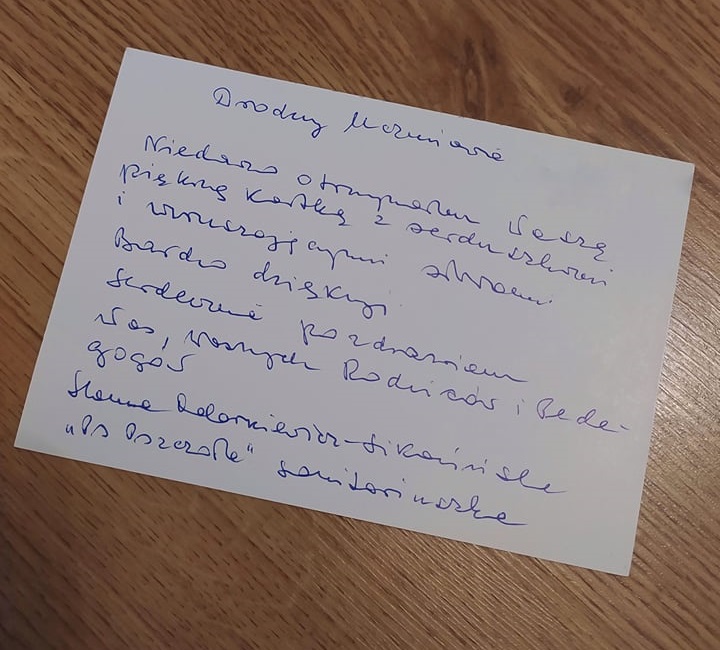 Drodzy Uczniowie
Niedawno otrzymałam Waszą
piękną kartkę z serduszkami
i wzruszającymi słowami
Bardzo dziękuję
Serdecznie pozdrawiam
Was, Waszych Rodziców i Peda-
gogów
-Sikorińska
"Ps Pszczoła" sanitariuszka